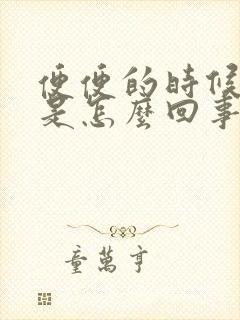 便便的時候
是怎麼回事
童萬亨